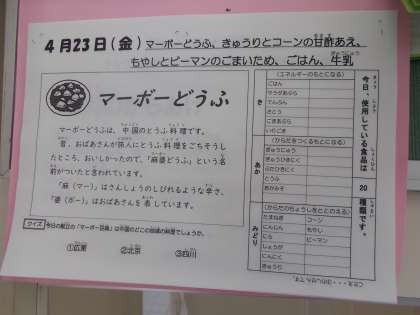 4月23日(金) マーボーどうふ、きゅうりとコーンの甘酢あえ、
もやしとピーマンのごまいため、ごはん、牛乳
マーボーどうふ
マーボーどうふは、中国のとうふ料理です。
昔、おばあさんが旅人にとうふ料理をごちそうし
たところ、おいしかったので、「麻婆どうふ」という名
前がついたと言われています。
「麻(マー)」はさんしょうのしびれるような辛さ、
「婆(ボー)」はおばあさんを表しています。
クイズ 今日の献立の「マーボー豆腐」は中国のどこの地域の料理でしょうか。
①広東 ②北京 ③四川
今日、使用している食品は 20 種類です。
き
(エネルギーのもとになる)
ごはん
サラダあぶら
でんぷん
さとう
ごまあぶら
いりごま
あか
(からだをつくるもとになる)
ぎゅうにゅう
とうふ
あかみそ
みどり
(からだのちょうしをととのえる)
たまねぎ コーン
にんじん もやし
にら ピーマン
しょうが
にんにく
きゅうり